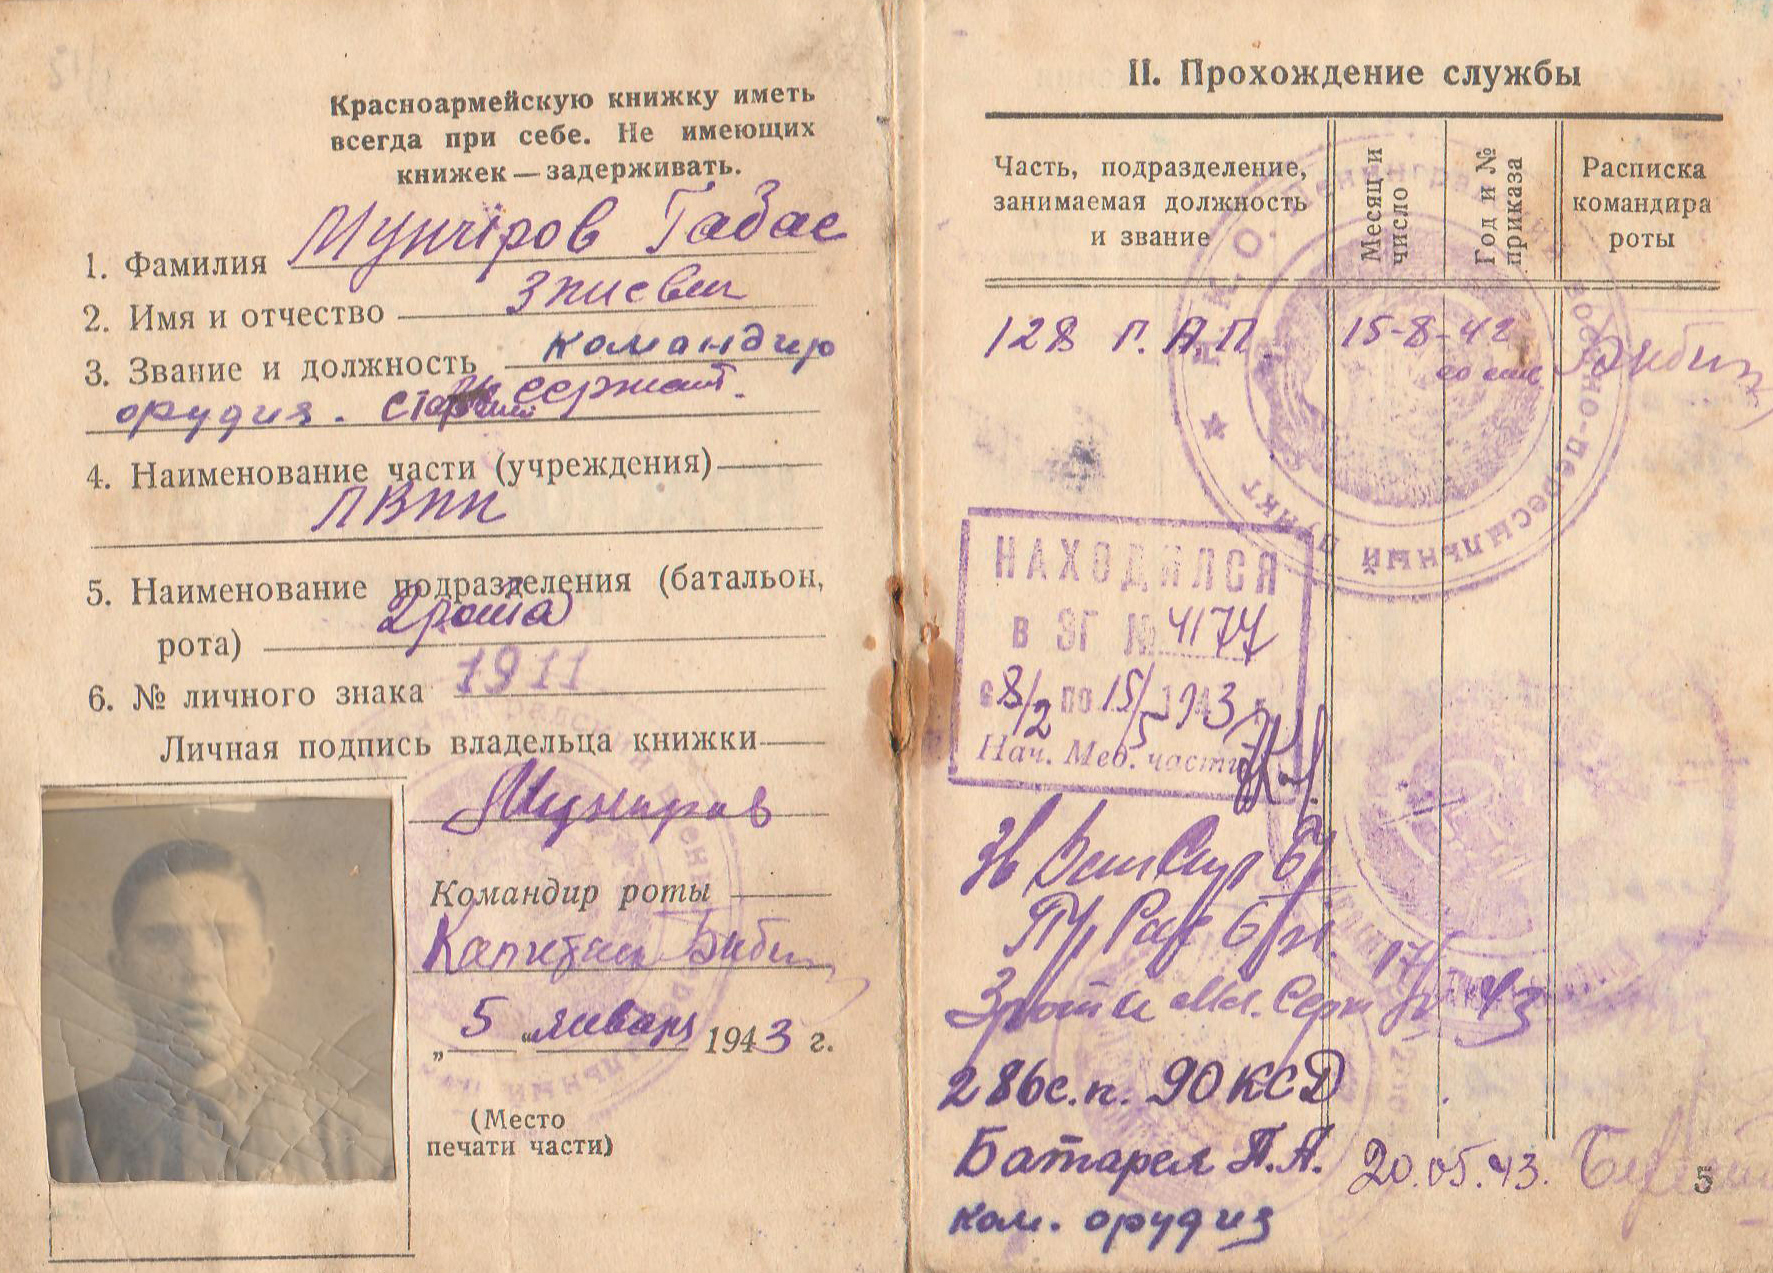 Красноармейскую книжку иметь
всегда при себе. Не имеющих
книжек — задерживать.
1. Фамилия Мунчіров Габас
2. Имя и отчество
3. Звание и должность командир
орудия. старший сержант.
4. Наименование части (учреждения)
ЛВПП
5. Наименование подразделения (батальон,
рота) 2 рота
6. № личного знака 1911
Личная подпись владельца книжки
Командир роты
Капитан
„5“ января 1943 г.
(Место
печати части)
II. Прохождение службы
Часть, подразделение,
занимаемая должность
и звание
Месяц и
число
Год и №
приказа
Расписка
командира
роты
128 Г.А.П. 15-8-42
НКО
военно-пересыльный пункт
НАХОДИЛСЯ
в ЭГ № 4174
с 8/2 по 15/5 1943 г.
Нач. Мед. части
17/V 43
3 роты мл. серж
286 с.п. 90 КСД
Батарея П.А. 20.05.43.
ком. орудия
5